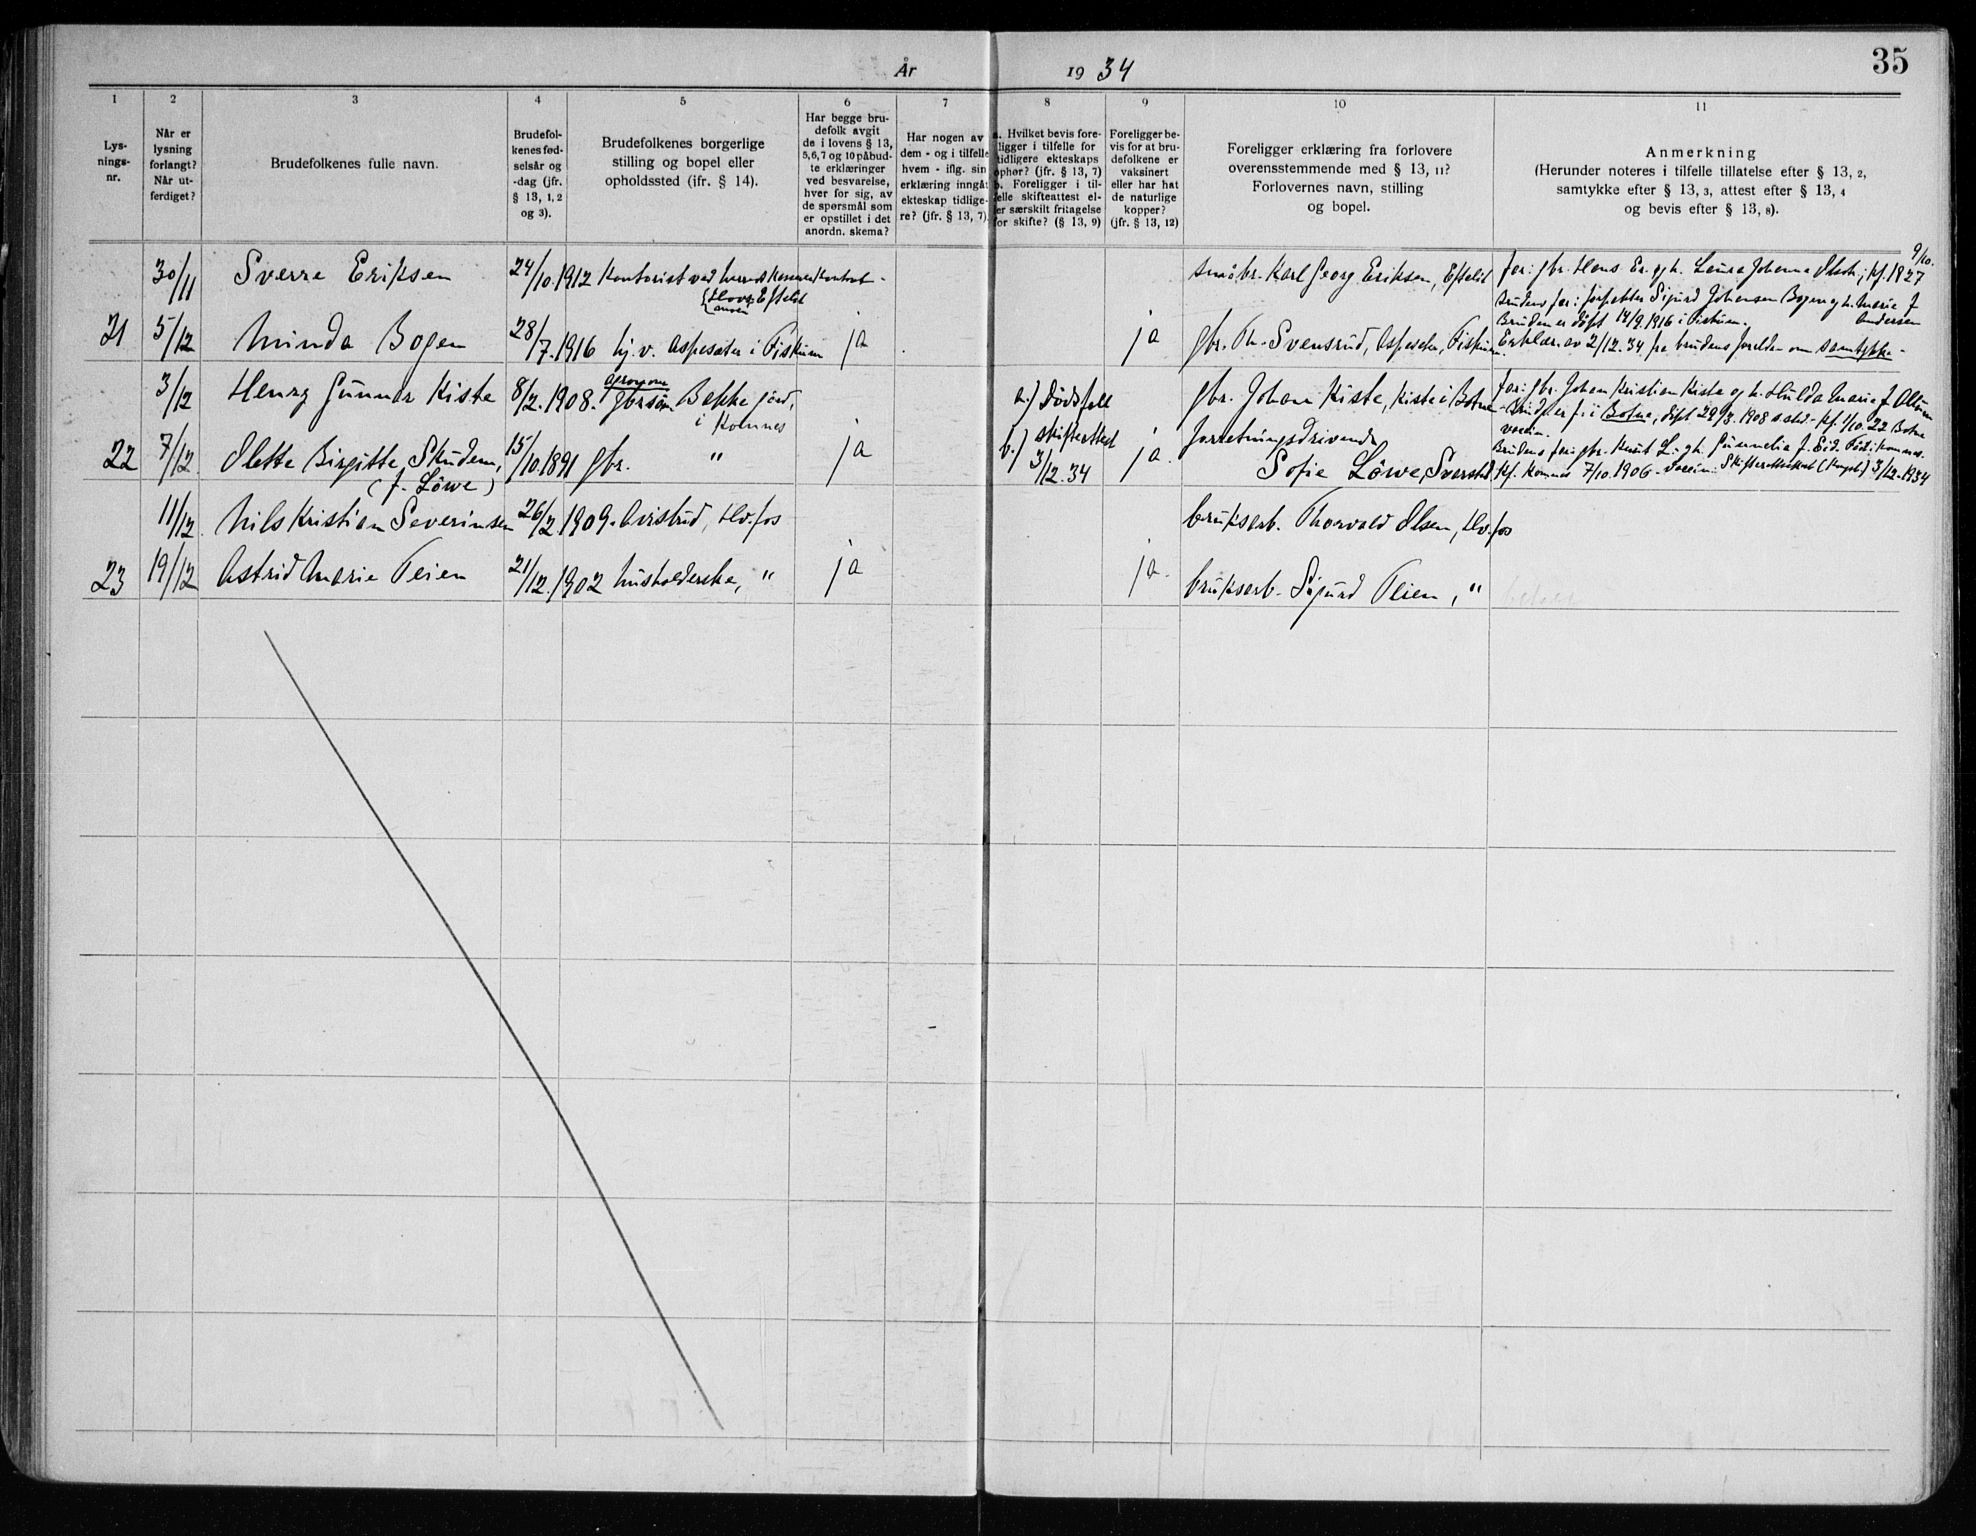 År 1934
35
1 2 3 4 5 6 7 8 9 10 11
Lys-
nings-
nr.
Når er
lysning
forlangt?
Når ut-
ferdiget?
Brudefolkenes fulle navn.
Brudefol-
kenes fød-
selsår og
-dag (jfr.
§ 13, 1, 2
og 3).
Brudefolkenes borgerlige
stilling og bopel eller
opholdssted (ifr. § 14).
Har begge bru-
defolk avgit
de i lovens § 13,
5, 6, 7 og 10 påbud-
te erklæringer
ved besvarelse,
hver for sig, av
de spørsmål som
er opstillet i det
anordn. skema?
Har nogen av
dem - og i tilfelle
hvem - iflg. sin
erklæring inngåt
ekteskap tidlige-
re? (jfr. § 13, 7)
a. Hvilket bevis fore-
ligger i tilfelle for
tidligere ekteskaps
ophør? (jfr. § 13, 7)
b. Foreligger i til-
felle skifteattest el-
ler særskilt fritagelse
for skifte? (§ 13, 9)
Foreligger be-
vis for at bru-
defolkene er
vaksinert
eller har hat
de naturlige
kopper?
(jfr. § 13, 12)
Foreligger erklæring fra forlovere
overensstemmende med § 13, 11?
Forlovernes navn, stilling
og bopel.
Anmerkning
(Herunder noteres i tilfelle tillatelse efter § 13, 2,
samtykke efter § 13, 3, attest efter § 13, 4
og bevis efter § 13, 8).
30/11 Sverre Eriksen 24/10.1912 Kontorist ved herredskassenkontoret -
Hovs Efteløt
småbr. Karl Georg Eriksen, Efteløt
9/10.
far: gbr. Hans Er. og h. Laura Johanna Olsdt.; kf. 1927
21 5/12 Minda Bogen 28/7.1916 hj. v. Aspesæter i Fiskum ja ja
gbr. Th. Svensrud, Aspeseter, Fiskum.
Brudens far: forpakter Sigurd Johansen Bogen og h. Marie f.
Andersen
Bruden er døpt 14/9.1916 i Fiskum.
Erklær. av 2/12.34 fra brudens forelder om samtykke -
3/12 Henry Gunnar Kiste 8/2.1908. agronom
gbrsøn Bakke gård,
i Komnes
a.) Dødsfall
gbr. Johan Kiste, Kiste i Botne
far: gbr. Johan Kristian Kiste og h. Hulda Marie f. Allum
Brudg. er f. i Botne, døpt 29/3.1908 a. std. - kf. 1/10.22 Botne
vaccin.
22 7/12. Olette Birgitte Skuden,
(f. Löwe)
15/10.1891 gbr. " ja
b.) skifteattest
3/12.34 ja.
forretningsdrivende
Sofie Löwe, Svarstad
Brudens far: gbr. Knut L. og h. Gunnelia f. Eid. Född i Komnes.
Kf. Komnes 7/10.1906 - vaccin: Skifterettsattest (Kongsb.) 3/12.1934
11/12. Nils Kristian Severinsen 26/2.1909. Avisbud, Hv.fos
bruksarb. Thorvald Olsen, Hv.fos
23 19/12 Astrid Marie Teien 21/12.1902 husholderske, " ja ja.
bruksarb. Sigurd Teien, "